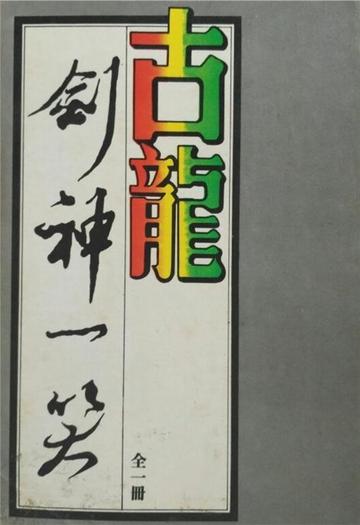 古龍
劍神一笑
全一冊